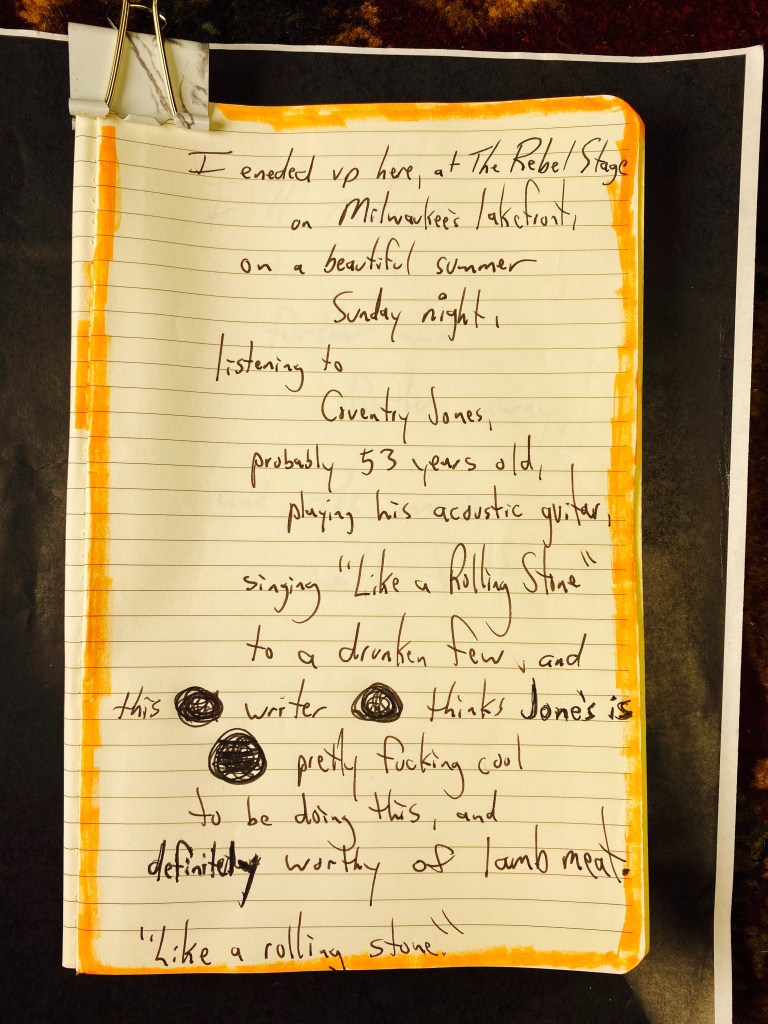 I eneded up here, at The Rebel Stage
on Milwaukee's lakefront,
on a beautiful summer
Sunday night,
listening to
Coventry Jones,
probably 53 years old,
playing his acoustic guitar,
singing "Like a Rolling Stone"
to a drunken few, and
this writer thinks Jone's is
pretty fucking cool
to be doing this, and
definitely worthy of lamb meat.
"Like a rolling stone."